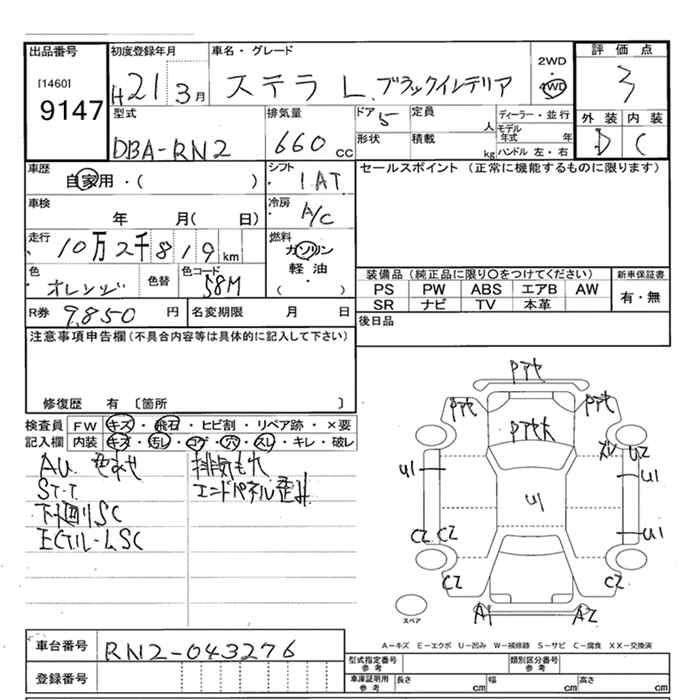 出品番号 初度登録年月 車名・グレード 2WD・4WD 評価点
[1460]
9147 H21 3月 ステラ L. ブラックインテリア 3
型式 排気量 ドア 定員 ディーラー・並行 外装 内装
DBA-RN2 660cc 5 人 モデル年式 年 D C
形状 積載 kg ハンドル 左・右
車歴 シフト セールスポイント (正常に機能するものに限ります)
自家用・( ) 1AT
車検 冷房
年 月( 日) A/C
走行 燃料
10万2千819km ガソリン
軽油
( )
色 色替 色コード 装備品 (純正品に限り○をつけてください) 新車保証書
オレンジ 58M PS PW ABS エアB AW 有・無
SR ナビ TV 本革
R券 9,850円 名変期限 月 日 後日品
注意事項申告欄(不具合内容等は具体的に記入して下さい)
修復歴 有 〔箇所 〕
検査員 FW キズ・飛石・ヒビ割・リペア跡・×要
記入欄 内装 キズ・汚レ・コゲ・穴・スレ・キレ・破レ
AU. 色あせ 排気もれ
ST.T エンドパネル歪み
下廻りSC
Pアセ
Pアセ Pアセ
Pアセ大
U2
U1 U1
U1
U1
C2 C2
C2 C2
A1 A2
スペア
A―キズ E―エクボ U―凹み W―補修跡 S―サビ C―腐食 XX―交換済
車台番号 RN2-043276
型式指定番号 参考 類別区分番号 参考
登録番号 車庫証明用 参考 長さ cm 幅 cm 高さ cm